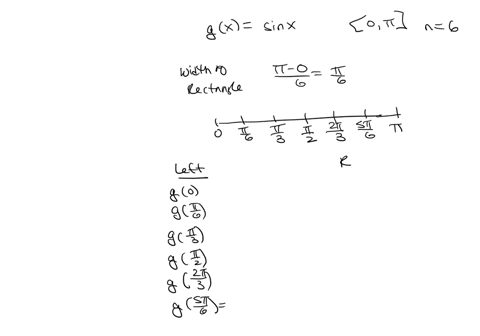 g(x) = sinx [0, π] n=6
Width of Rectangle π-0/6 = π/6
0 π/6 π/3 π/2 2π/3 5π/6 π
R
Left
g(0)
g(π/6)
g(π/3)
g(π/2)
g(2π/3)
g(5π/6)=